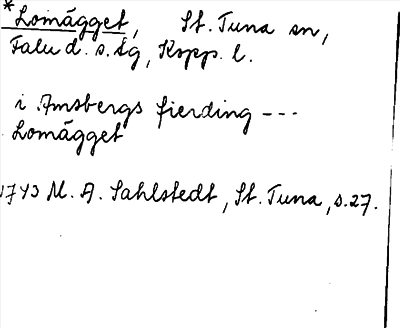 *Lomägget, St. Tuna sn,
Falu d. s. lg, Kopp. l.
i Amsbergs fierding ---
Lomägget
1743 M. A. Sahlstedt, St. Tuna, s. 27.